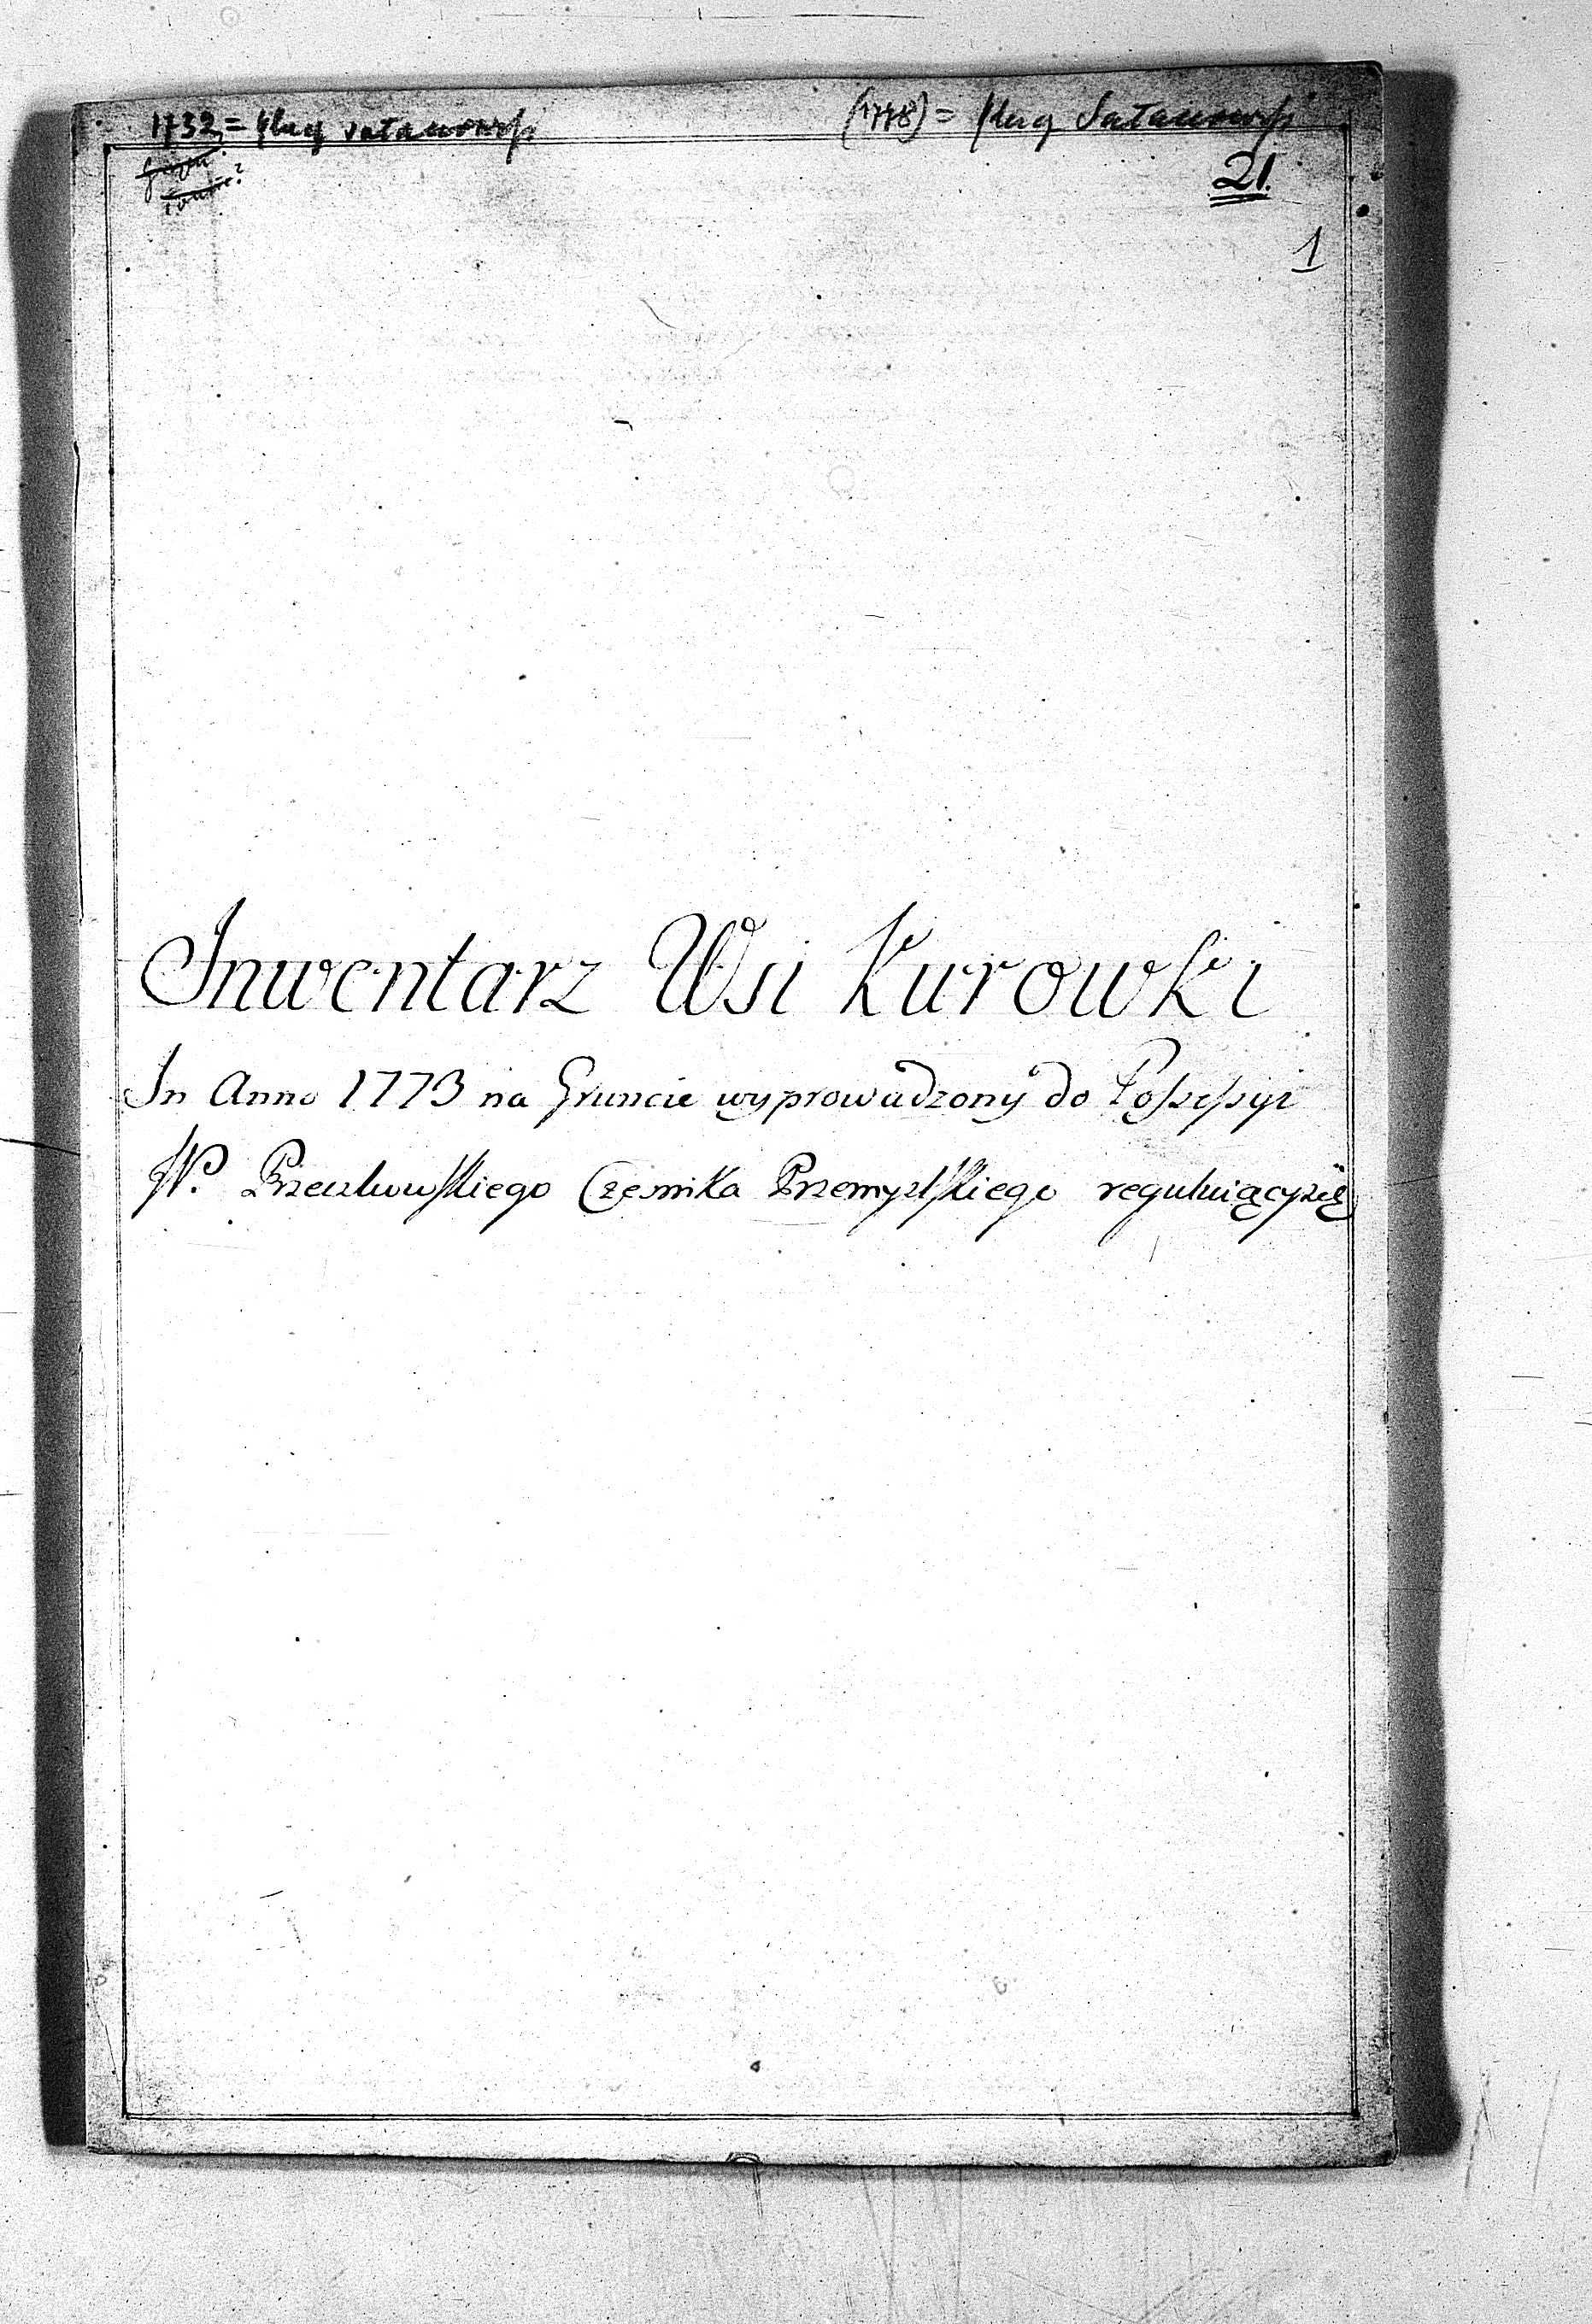 1732 = klucz satanowsk (1778) = klucz Satanowsk
21.
1
Inwentarz Wsi Kurowki
In Anno 1773 na Gruncie wyprowadzony do Possessyi
W. Czesnika Przemyslskiego reguluiący się